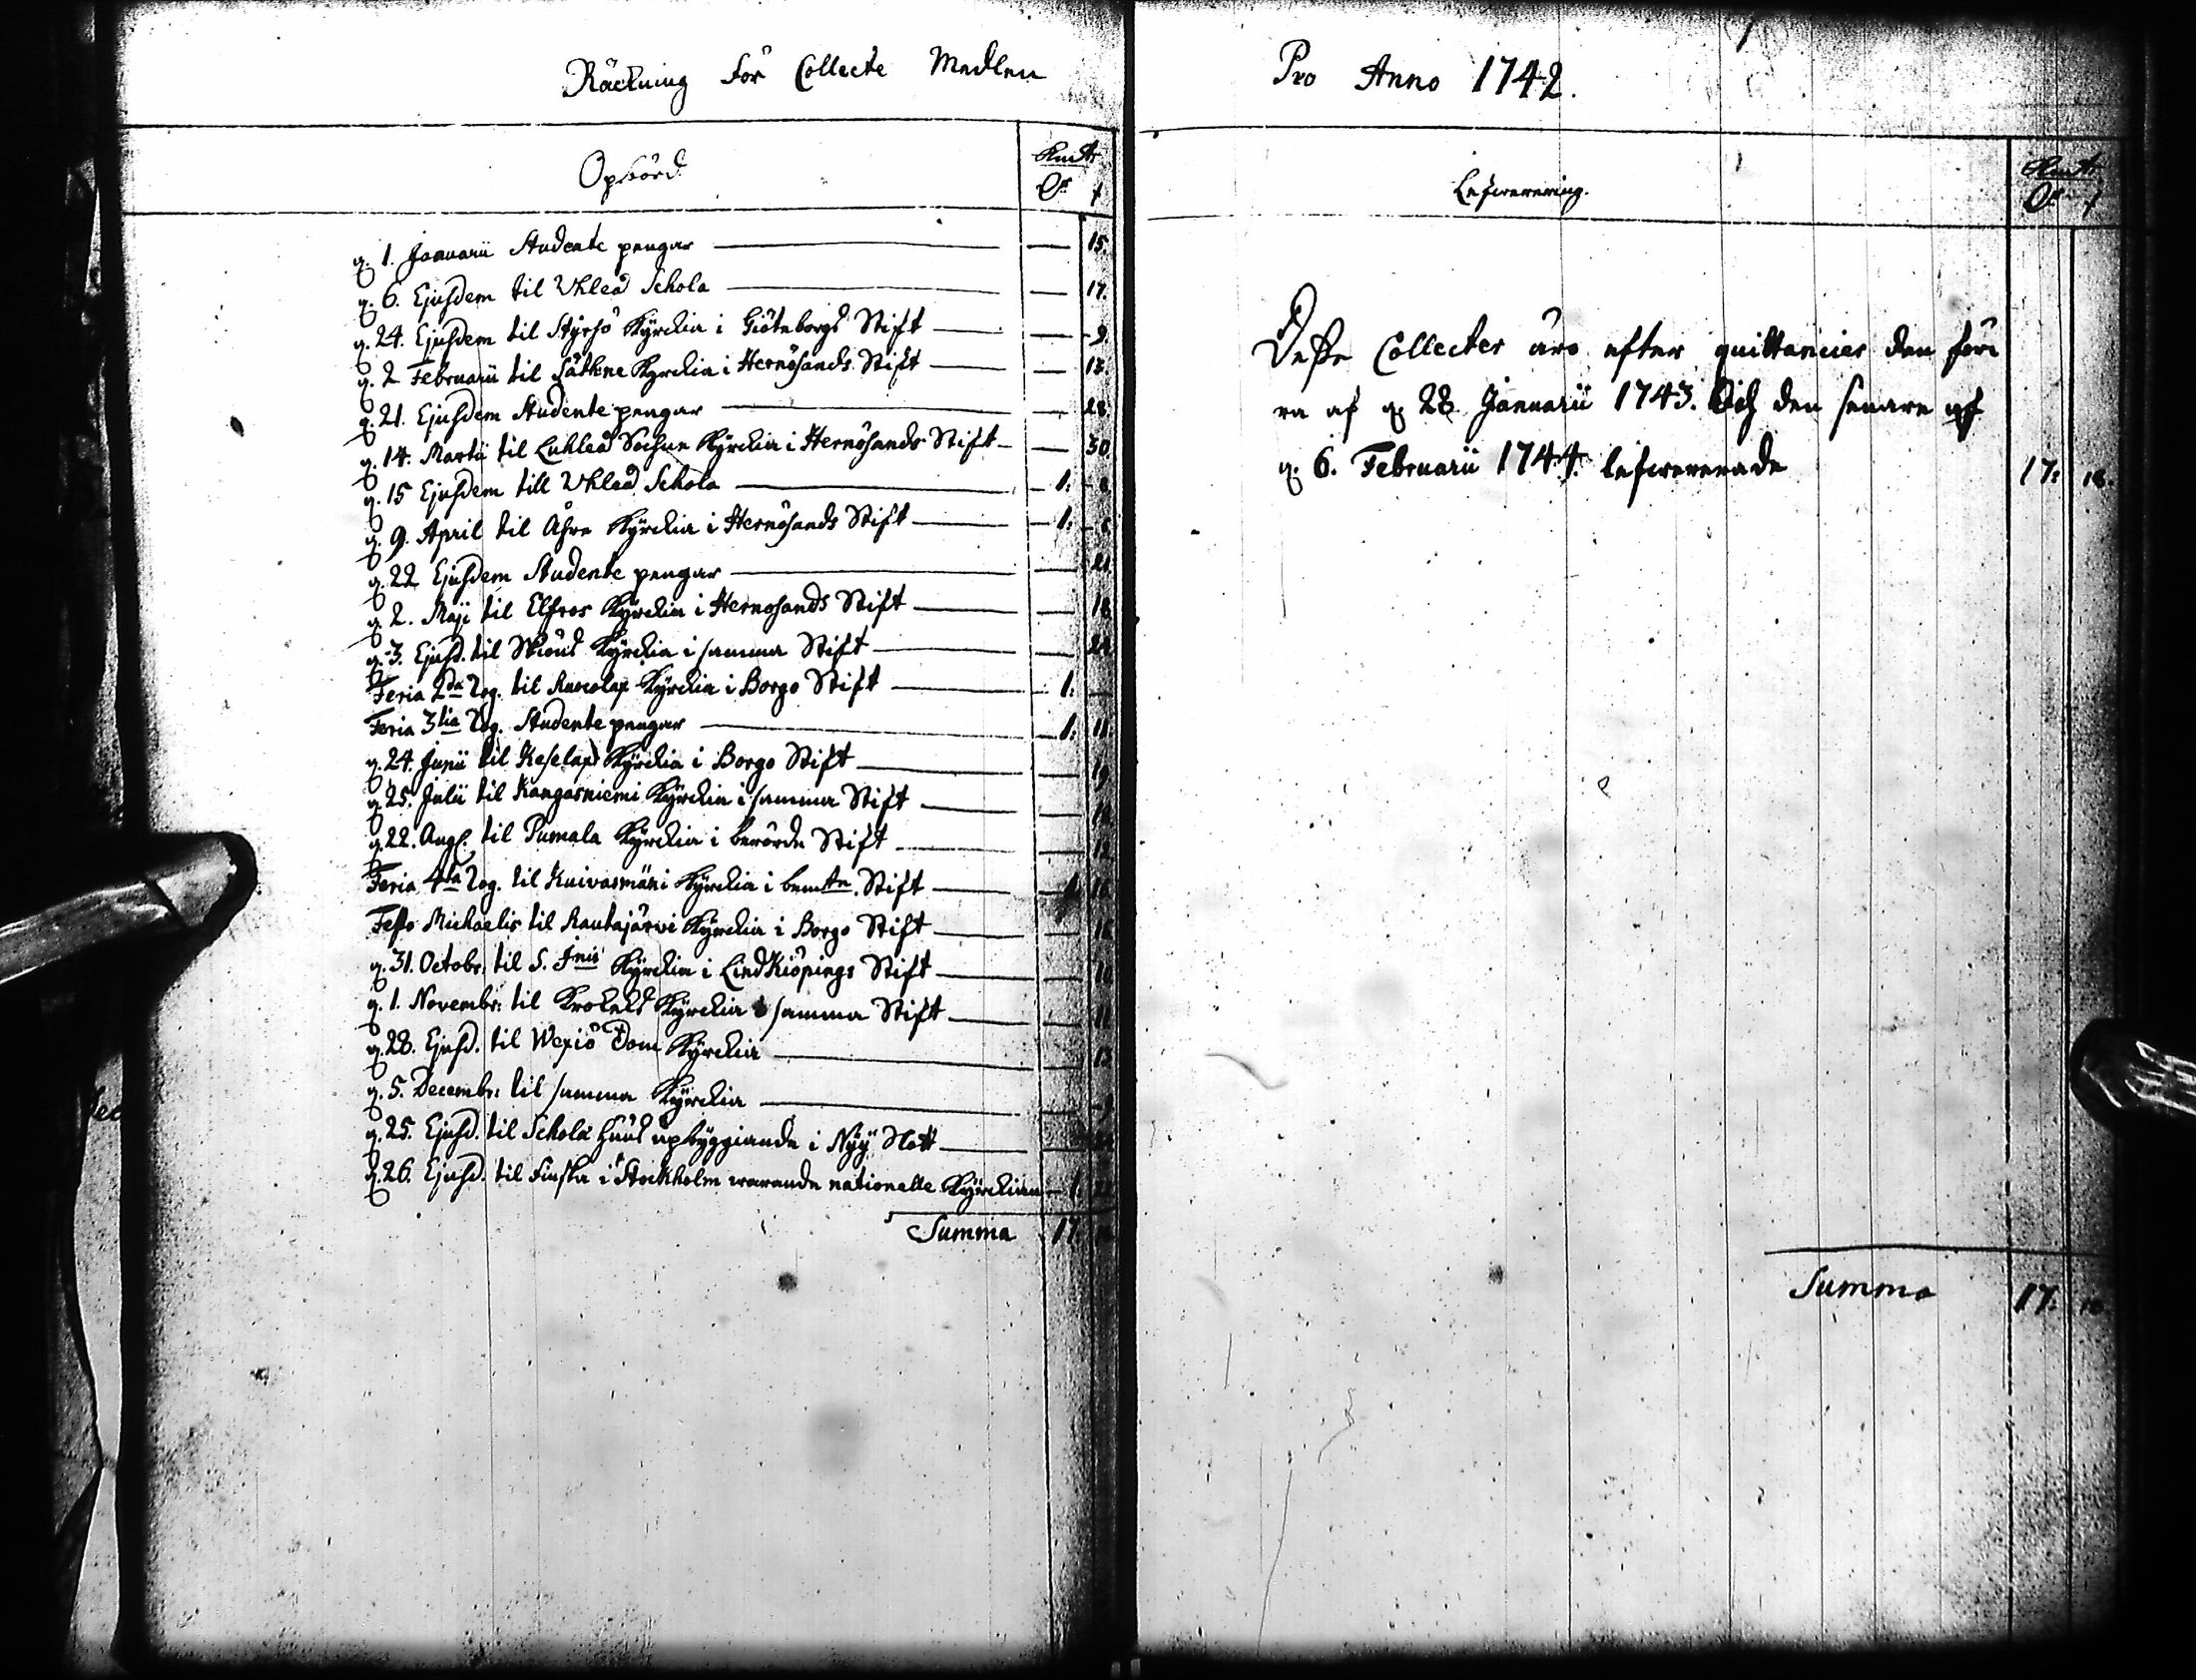 Räckning För Collecte Medlen
Opbörd
Kmt
d. 1. Januarii Studente pengar — 15.
d. 6. Ejusdem til Uhleå Schola — 17.
d. 24. Ejusdem til Styrsö Kyrckia i Giöteborgs Stift — 9.
d. 2 Februarii til Sätkne Kyrckia i Hernösands Stift —
d. 21. Ejusdem Studente pengar — 28.
d. 14. Martii til Luhleå Sochne Kyrckia i Hernösands Stift — 30
d. 15 Ejusdem till Uhleå Schola — 1:
d. 9. April til Åhre Kyrckia i Hernösands Stift — 1:
d. 22 Ejusdem Studente pengar — 21.
d. 2. Maji til Elfros Kyrckia i Hernosands Stift — 18.
d. 3. Ejusd. til Kyrckia i samma Stift — 24
Feria 2da Pog. til Ruocolax Kyrckia i Borgo Stift — 1:
Feria 3tia Pog. Studente pengar — 1: 11.
d. 24. Junii til Keselax Kyrckia i Borgo Stift — 19
d. 25. Julii til Kangasniemi Kyrckia i samma Stift —
d. 22. Aug. til Pumala Kyrckia i berörde Stift — 12
Feria 4ta Pog. til Kuivasmäki Kyrckia i bemte. Stift —
Festo Michaelis til Rautajärvi Kyrckia i Borgo Stift — 16
d. 31. Octobr. til S. Kyrckia i LindKiöpings Stift — 10
d. 1. Novembr: til Krokeks Kyrckia i samma Stift — 11
d. 28. Ejusd. til Wexiö Dom Kyrckia — 13
d. 5. Decembr: til samma Kyrckia — 9
d. 25. Ejusd. til Schola huus upbyggiande i Nÿÿ Slott —
d. 26. Ejusd. til Finska i Stockholm warande nationelle Kyrckian — 1:
Summa 17:
Pro Anno 1742.
Lefwerering.
Desse Collecter äro efter quittancier den förr
ra af d. 28 Januarii 1743. Och den senare af
d. 6. Februarii 1744. lefwererade 17: 18.
Summa 17: 18.